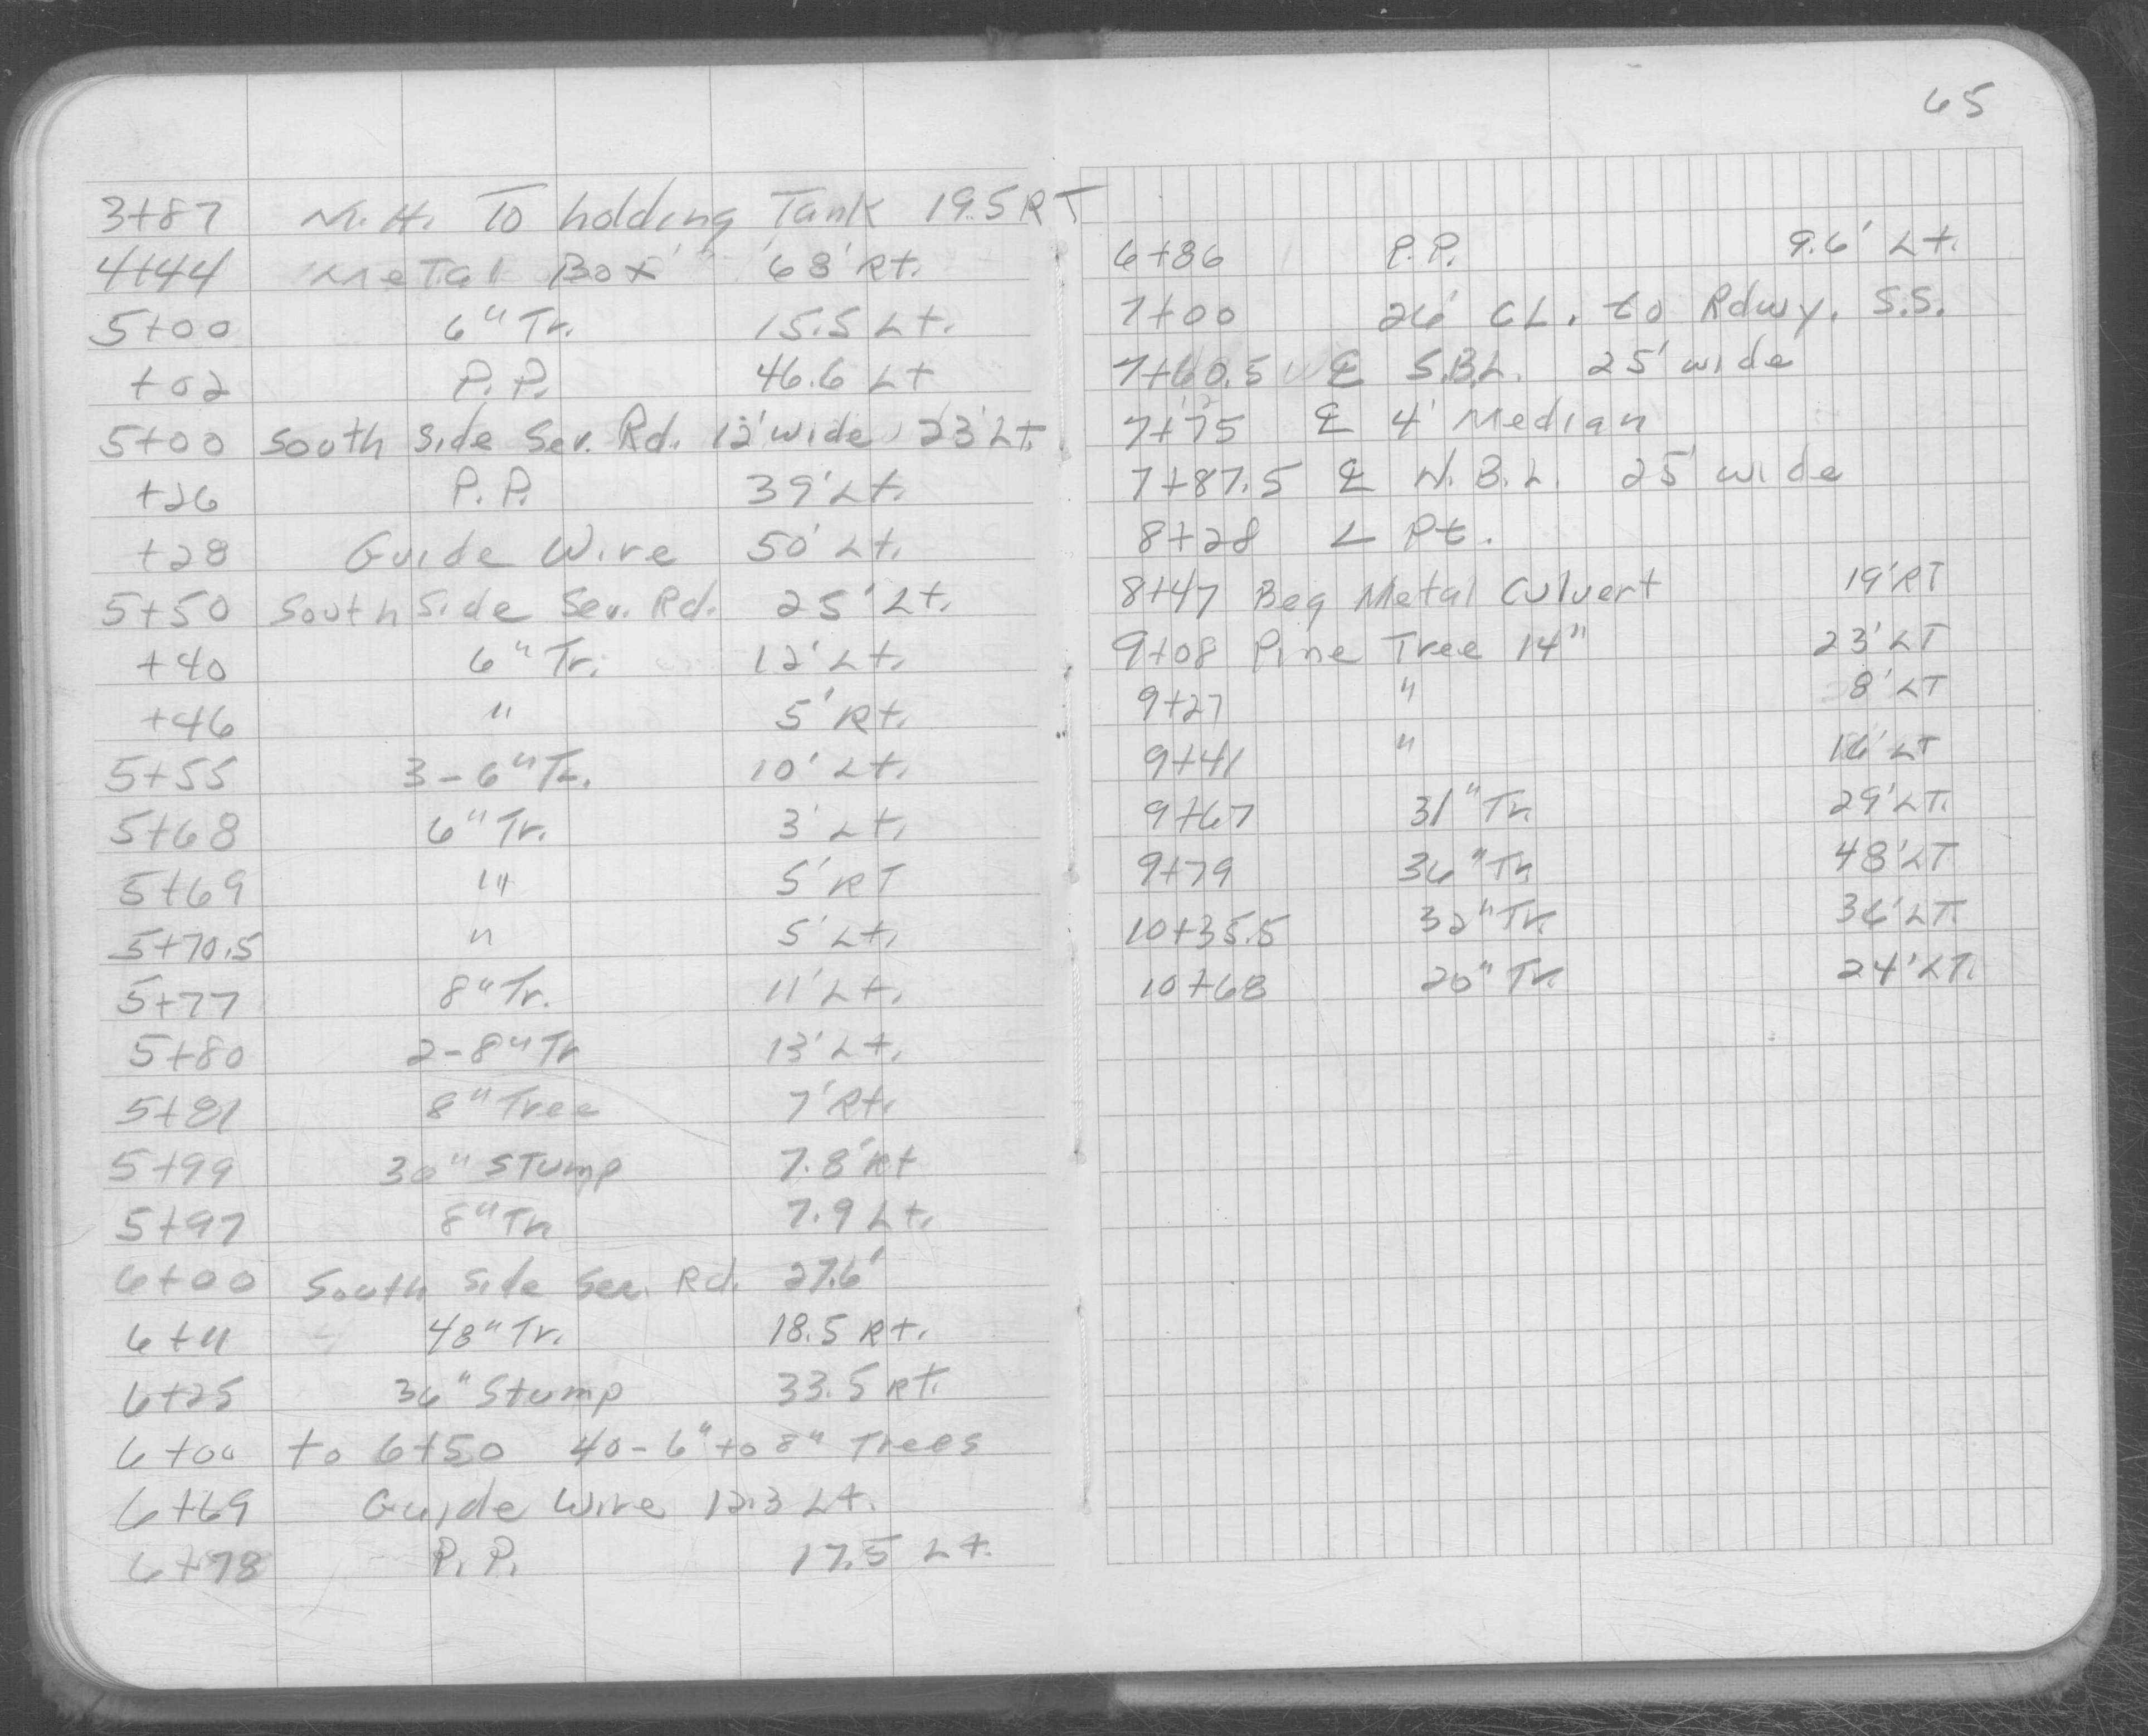 3+87 M.H. To holding Tank 19.5 RT
4+44 Metal Box 68' Rt.
5+00 6" Tr. 15.5 Lt.
+02 P.P. 46.6 Lt
5+00 South Side Ser. Rd. 12' wide 23' Lt.
+26 P.P. 39' Lt.
+28 Guide Wire 50' Lt.
5+50 South Side Ser. Rd. 25' Lt.
+40 6" Tr. 12' Lt.
+46 " 5' Rt.
5+55 3-6" Tr. 10' Lt.
5+68 6" Tr. 3' Lt.
5+69 " 5' RT
5+70.5 " 5' Lt.
5+77 8" Tr. 11' Lt.
5+80 2-8" Tr 13' Lt.
5+81 8" Tree 7' Rt.
5+99 30" Stump 7.8' Rt
5+97 8" Tr. 7.9 Lt.
6+00 South Side Ser. Rd. 27.6'
6+11 48" Tr. 18.5 Rt.
6+25 36" Stump 33.5 Rt.
6+00 to 6+50 40-6" to 8" Trees
6+69 Guide Wire 12.3 Lt.
6+78 P.P. 17.5 Lt.
65
6+86 P.P. 9.6' Lt.
7+00 26' CL. to Rdwy. S.S.
7+60.5 ℄ S.B.L. 25' wide
7+75 ℄ 4' Median
7+87.5 ℄ N.B.L. 25' wide
8+28 ∠ Pt.
8+47 Beg Metal Culvert 19' RT
9+08 Pine Tree 14" 23' LT
9+27 " 8' LT
9+41 " 16' LT
9+67 31" Tr. 29' LT.
9+79 36" Tr. 48' LT
10+35.5 32" Tr. 36' LT.
10+68 20" Tr. 24' LT.